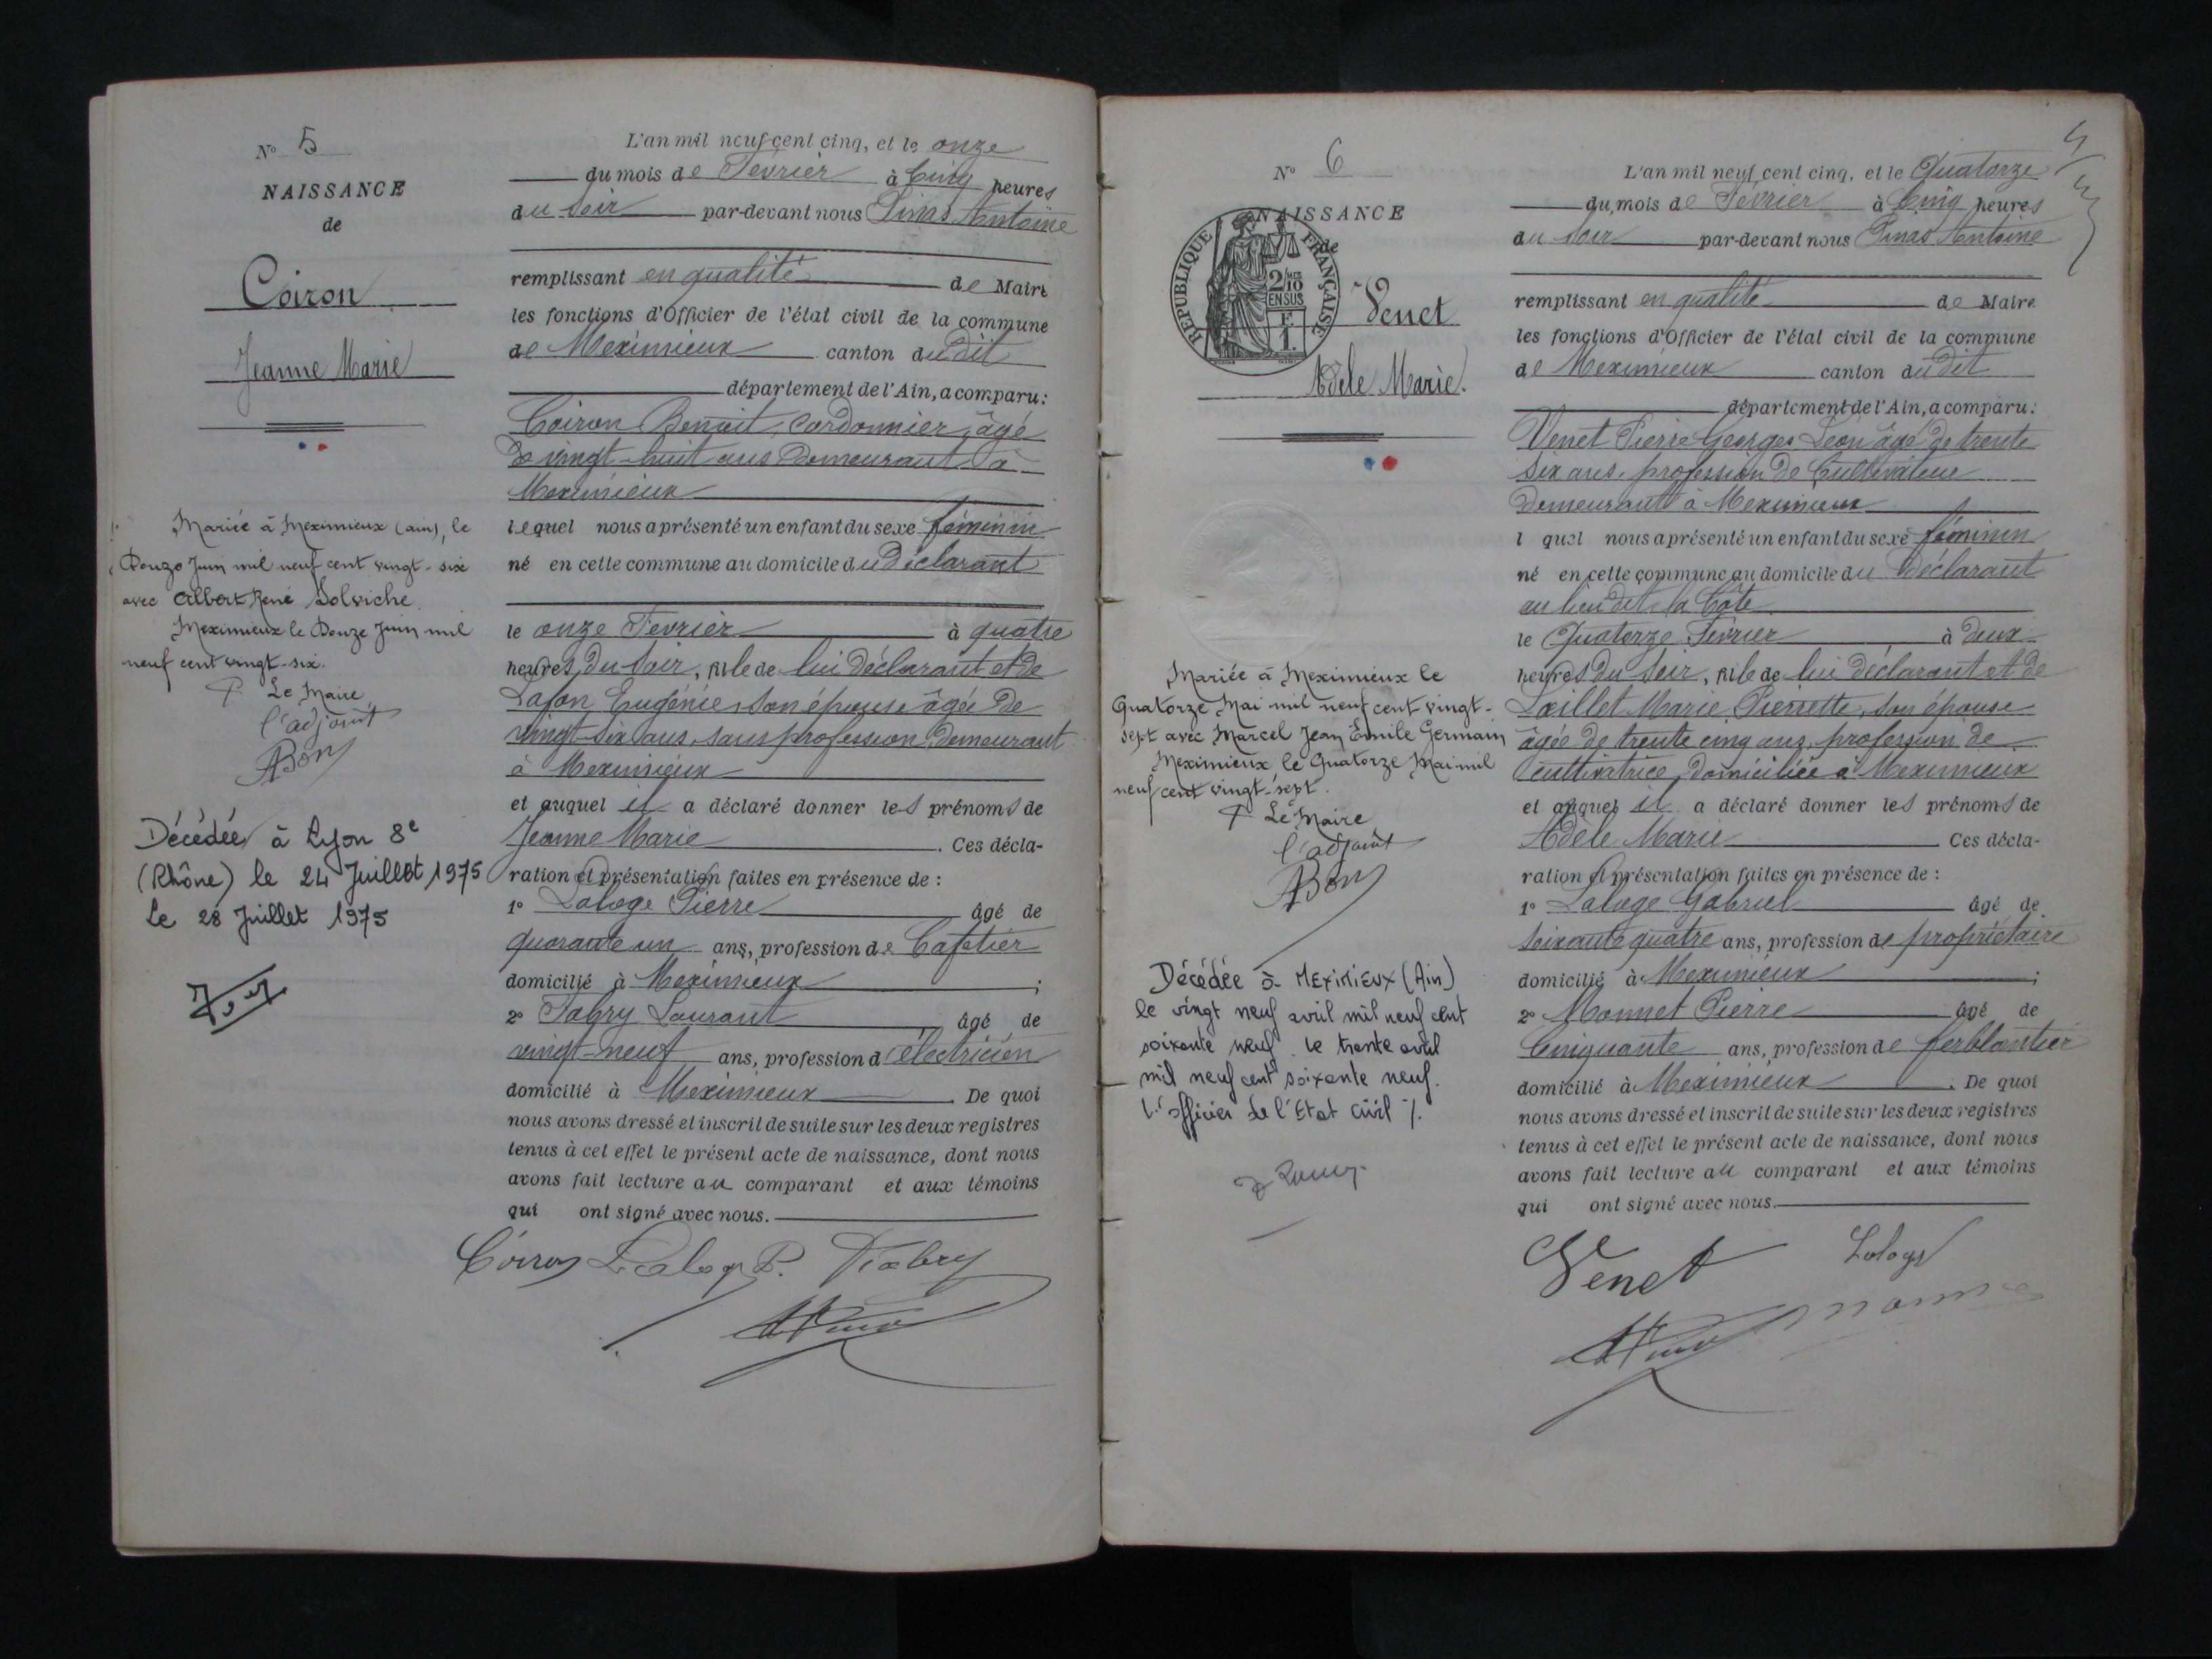 N° 5
NAISSANCE
de
Coiron
Jeanne Marie
Mariée à Meximieux (ain), le
Douze Juin mil neuf cent vingt-six
avec Albert René Dolviche.
Meximieux le Douze Juin mil
neuf cent vingt-six.
P. Le Maire
l'adjoint
ABon
Décédée à Lyon 8e
(Rhône) le 24 Juillet 1975
Le 28 Juillet 1975
L'an mil neuf cent cinq, et le onze
du mois de Février à Cinq heures
du soir par-devant nous Pinas Antoine
remplissant en qualité de Maire
les fonctions d'Officier de l'état civil de la commune
de Meximieux canton dudit
département de l'Ain, a comparu:
Coiron Benoit, cordonnier, âgé
de vingt-huit ans demeurant à
Meximieux
lequel nous a présenté un enfant du sexe féminin
né en cette commune au domicile du Déclarant
le onze Fevrier à quatre
heures du soir, fille de lui déclarant et de
Lafon Eugénie, son épouse âgée de
vingt-six ans, sans profession demeurant
à Meximieux
et auquel il a déclaré donner les prénoms de
Jeanne Marie. Ces décla-
ration et présentation faites en présence de :
1° Laloge Pierre âgé de
quarante un ans, profession de Cafetier
domicilié à Meximieux ;
2° Fabry Laurant, âgé de
vingt-neuf ans, profession d'électricien
domicilié à Meximieux. De quoi
nous avons dressé et inscrit de suite sur les deux registres
tenus à cet effet le présent acte de naissance, dont nous
avons fait lecture au comparant et aux témoins
qui ont signé avec nous.
Coiron Laloge P. Fabry
N° 6
NAISSANCE
de
REPUBLIQUE FRANÇAISE
2/10
EN SUS
F.
1.
Venet
Adele Marie.
Mariée à Meximieux le
Quatorze Mai mil neuf cent vingt-
sept avec Marcel Jean Émile Germain
Meximieux le Quatorze Mai mil
neuf cent vingt-sept.
P. Le Maire
l'adjoint
ABon
Décédée à MEXIMIEUX (Ain)
le vingt neuf avril mil neuf cent
soixante neuf. le trente avril
mil neuf cent soixante neuf.
L'officier de l'Etat Civil %.
L'an mil neuf cent cinq, et le Quatorze
du mois de Février à Cinq heures
du soir par-devant nous Pinas Antoine
remplissant en qualité de Maire
les fonctions d'Officier de l'état civil de la commune
de Meximieux canton dudit
département de l'Ain, a comparu:
Venet Pierre Georges Léon âgé de trente
six ans, profession de Cultivateur
demeurant à Meximieux
lequel nous a présenté un enfant du sexe féminin
né en cette commune au domicile du Déclarant
au lieu dit la Côte
le Quatorze Février à deux
heures du soir, fille de lui déclarant et de
Lœillet Marie Pierrette, son épouse
âgée de trente cinq ans, profession de
cultivatrice, domiciliée à Meximieux
et auquel il a déclaré donner les prénoms de
Adele Marie Ces décla-
ration et présentation faites en présence de :
1° Laloge Gabriel âgé de
soixante quatre ans, profession de propriétaire
domicilié à Meximieux ;
2° Monnet Pierre âgé de
Cinquante ans, profession de ferblantier
domicilié à Meximieux. De quoi
nous avons dressé et inscrit de suite sur les deux registres
tenus à cet effet le présent acte de naissance, dont nous
avons fait lecture au comparant et aux témoins
qui ont signé avec nous.
Venet Laloge